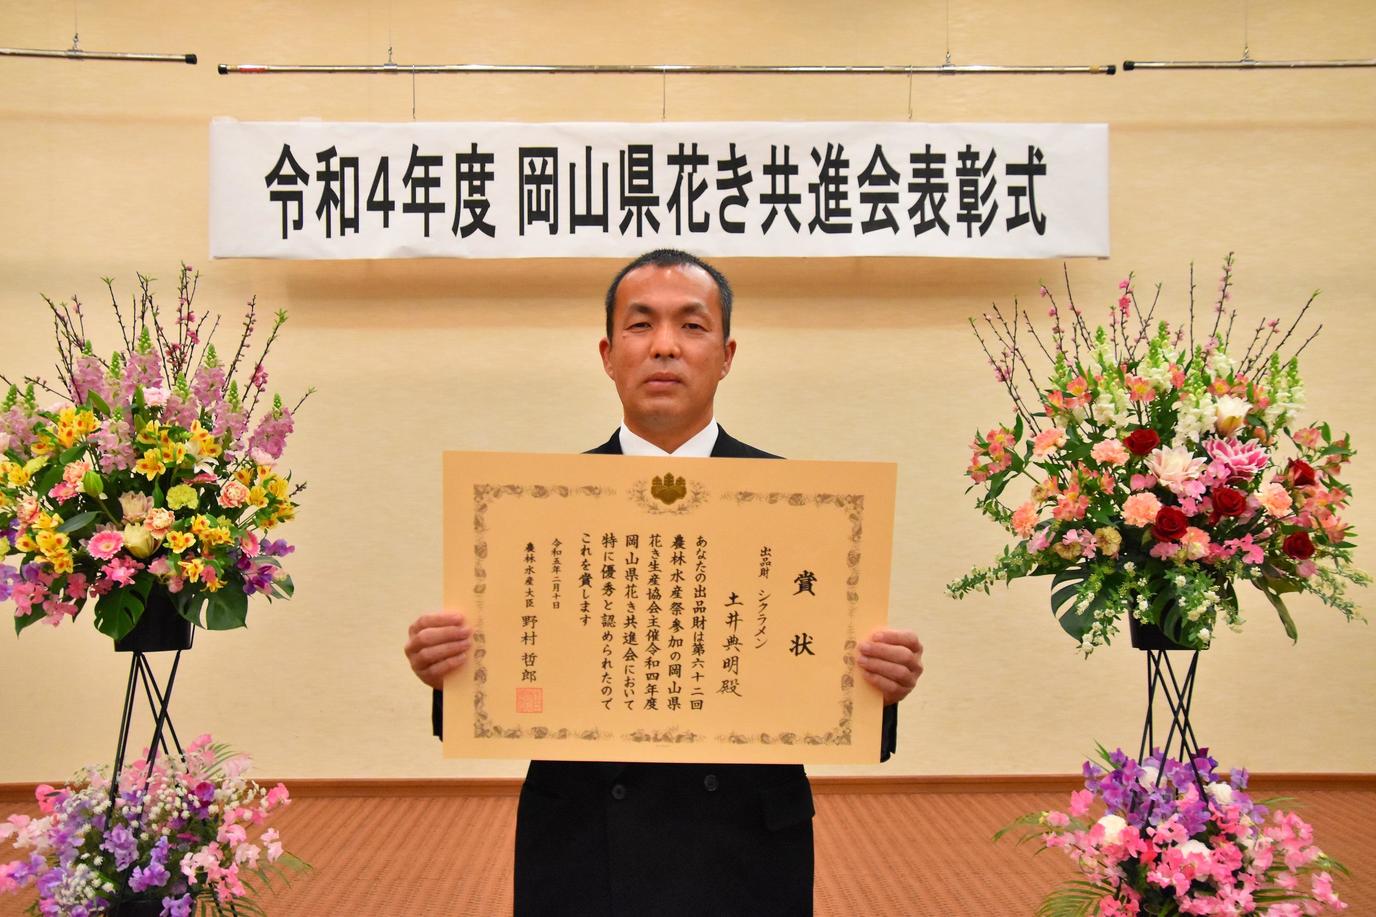 令和4年度 岡山県花き共進会表彰式
賞状
出品財 シクラメン
土井典明殿
あなたの出品財は第六十二回
農林水産祭参加の岡山県
花き生産協会主催令和四年度
岡山県花き共進会において
特に優秀と認められたので
これを賞します
令和五年二月十日
農林水産大臣 野村哲郎